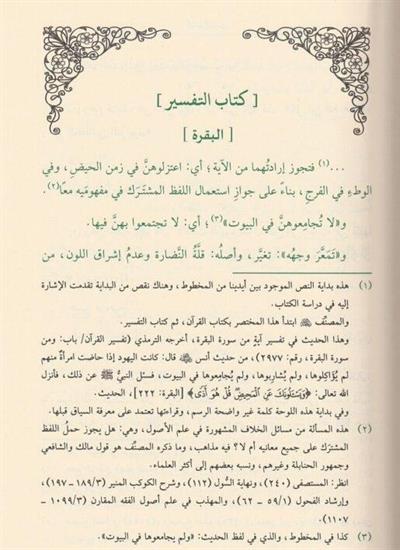 [ كتاب التفسير ]
[ البقرة ]
...(١) فتجوز إرادتُهما من الآية؛ أي: اعتزلوهنَّ في زمن الحيضِ، وفي
الوطءِ في الفرج، بناءً على جوازِ استعمال اللفظ المشتَرَك في مفهوميه معاً(٢).
و«لا تُجامعوهنَّ في البيوت»(٣)؛ أي: لا تجتمعوا بهنَّ فيها.
و«تَمَعَّرَ وجهُه»: تغيَّر، وأصلُه: قلَّةُ النَّضارة وعدمُ إشراق اللون، من
(١) هذه بداية النص الموجود بين أيدينا من المخطوط، وهناك نقص من البداية تقدمت الإشارة
إليه في دراسة الكتاب.
والمصنِّف ﷺ ابتدأ هذا المختصر بكتاب القرآن، ثم كتاب التفسير.
وهذا الحديث في تفسير آيةٍ من سورة البقرة، أخرجه الترمذي (تفسير القرآن/ باب: ومن
سورة البقرة، رقم: ٢٩٧٧)، من حديث أنس قال: كانت اليهود إذا حاضت امرأةٌ منهم
لم يُؤاكِلوها، ولم يُشاربوها، ولم يُجامِعوها في البيوت، فسئل النبيُّ ﷺ عن ذلك، فأنزل
الله تعالى: ﴿وَيَسْـَٔلُونَكَ عَنِ ٱلْمَحِيضِ قُلْ هُوَ أَذًى﴾ [البقرة: ٢٢٢]، الحديث.
وفي بداية هذه اللوحة كلمة غير واضحة الرسم، وقراءتها تعتمد على معرفة السياق قبلها.
(٢) هذه المسألة من مسائل الخلاف المشهورة في علم الأصول، وهي: هل يجوز حملُ اللفظ
المشترك على جميع معانيه أم لا؟ فيه مذاهب، وما ذكره المصنِّف هو قول مالك والشافعي
وجمهور الحنابلة وغيرهم، ونسبه بعضهم إلى أكثر العلماء.
انظر: المستصفى (٢٤٠)، ونهاية السُّول (١١٢)، وشرح الكوكب المنير (١٨٩/٣ - ١٩٧)،
وإرشاد الفحول (٥٩/١ - ٦٢)، والمهذب في علم أصول الفقه المقارن (١٠٩٩/٣ -
١١٠٧).
(٣) كذا في المخطوط، والذي في لفظ الحديث: «ولم يجامعوها في البيوت».